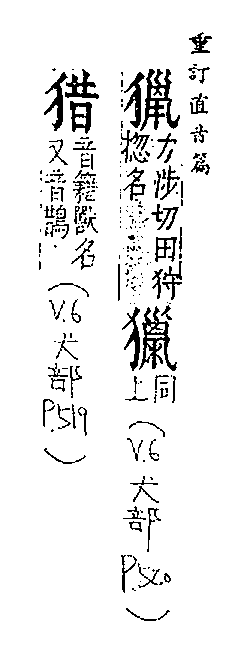 重訂直音篇
獵力涉切田狩
惣名
獵同上
(V.6犬部P.520)
猎音籍獸名
又音鵲
(V.6犬部P.519)